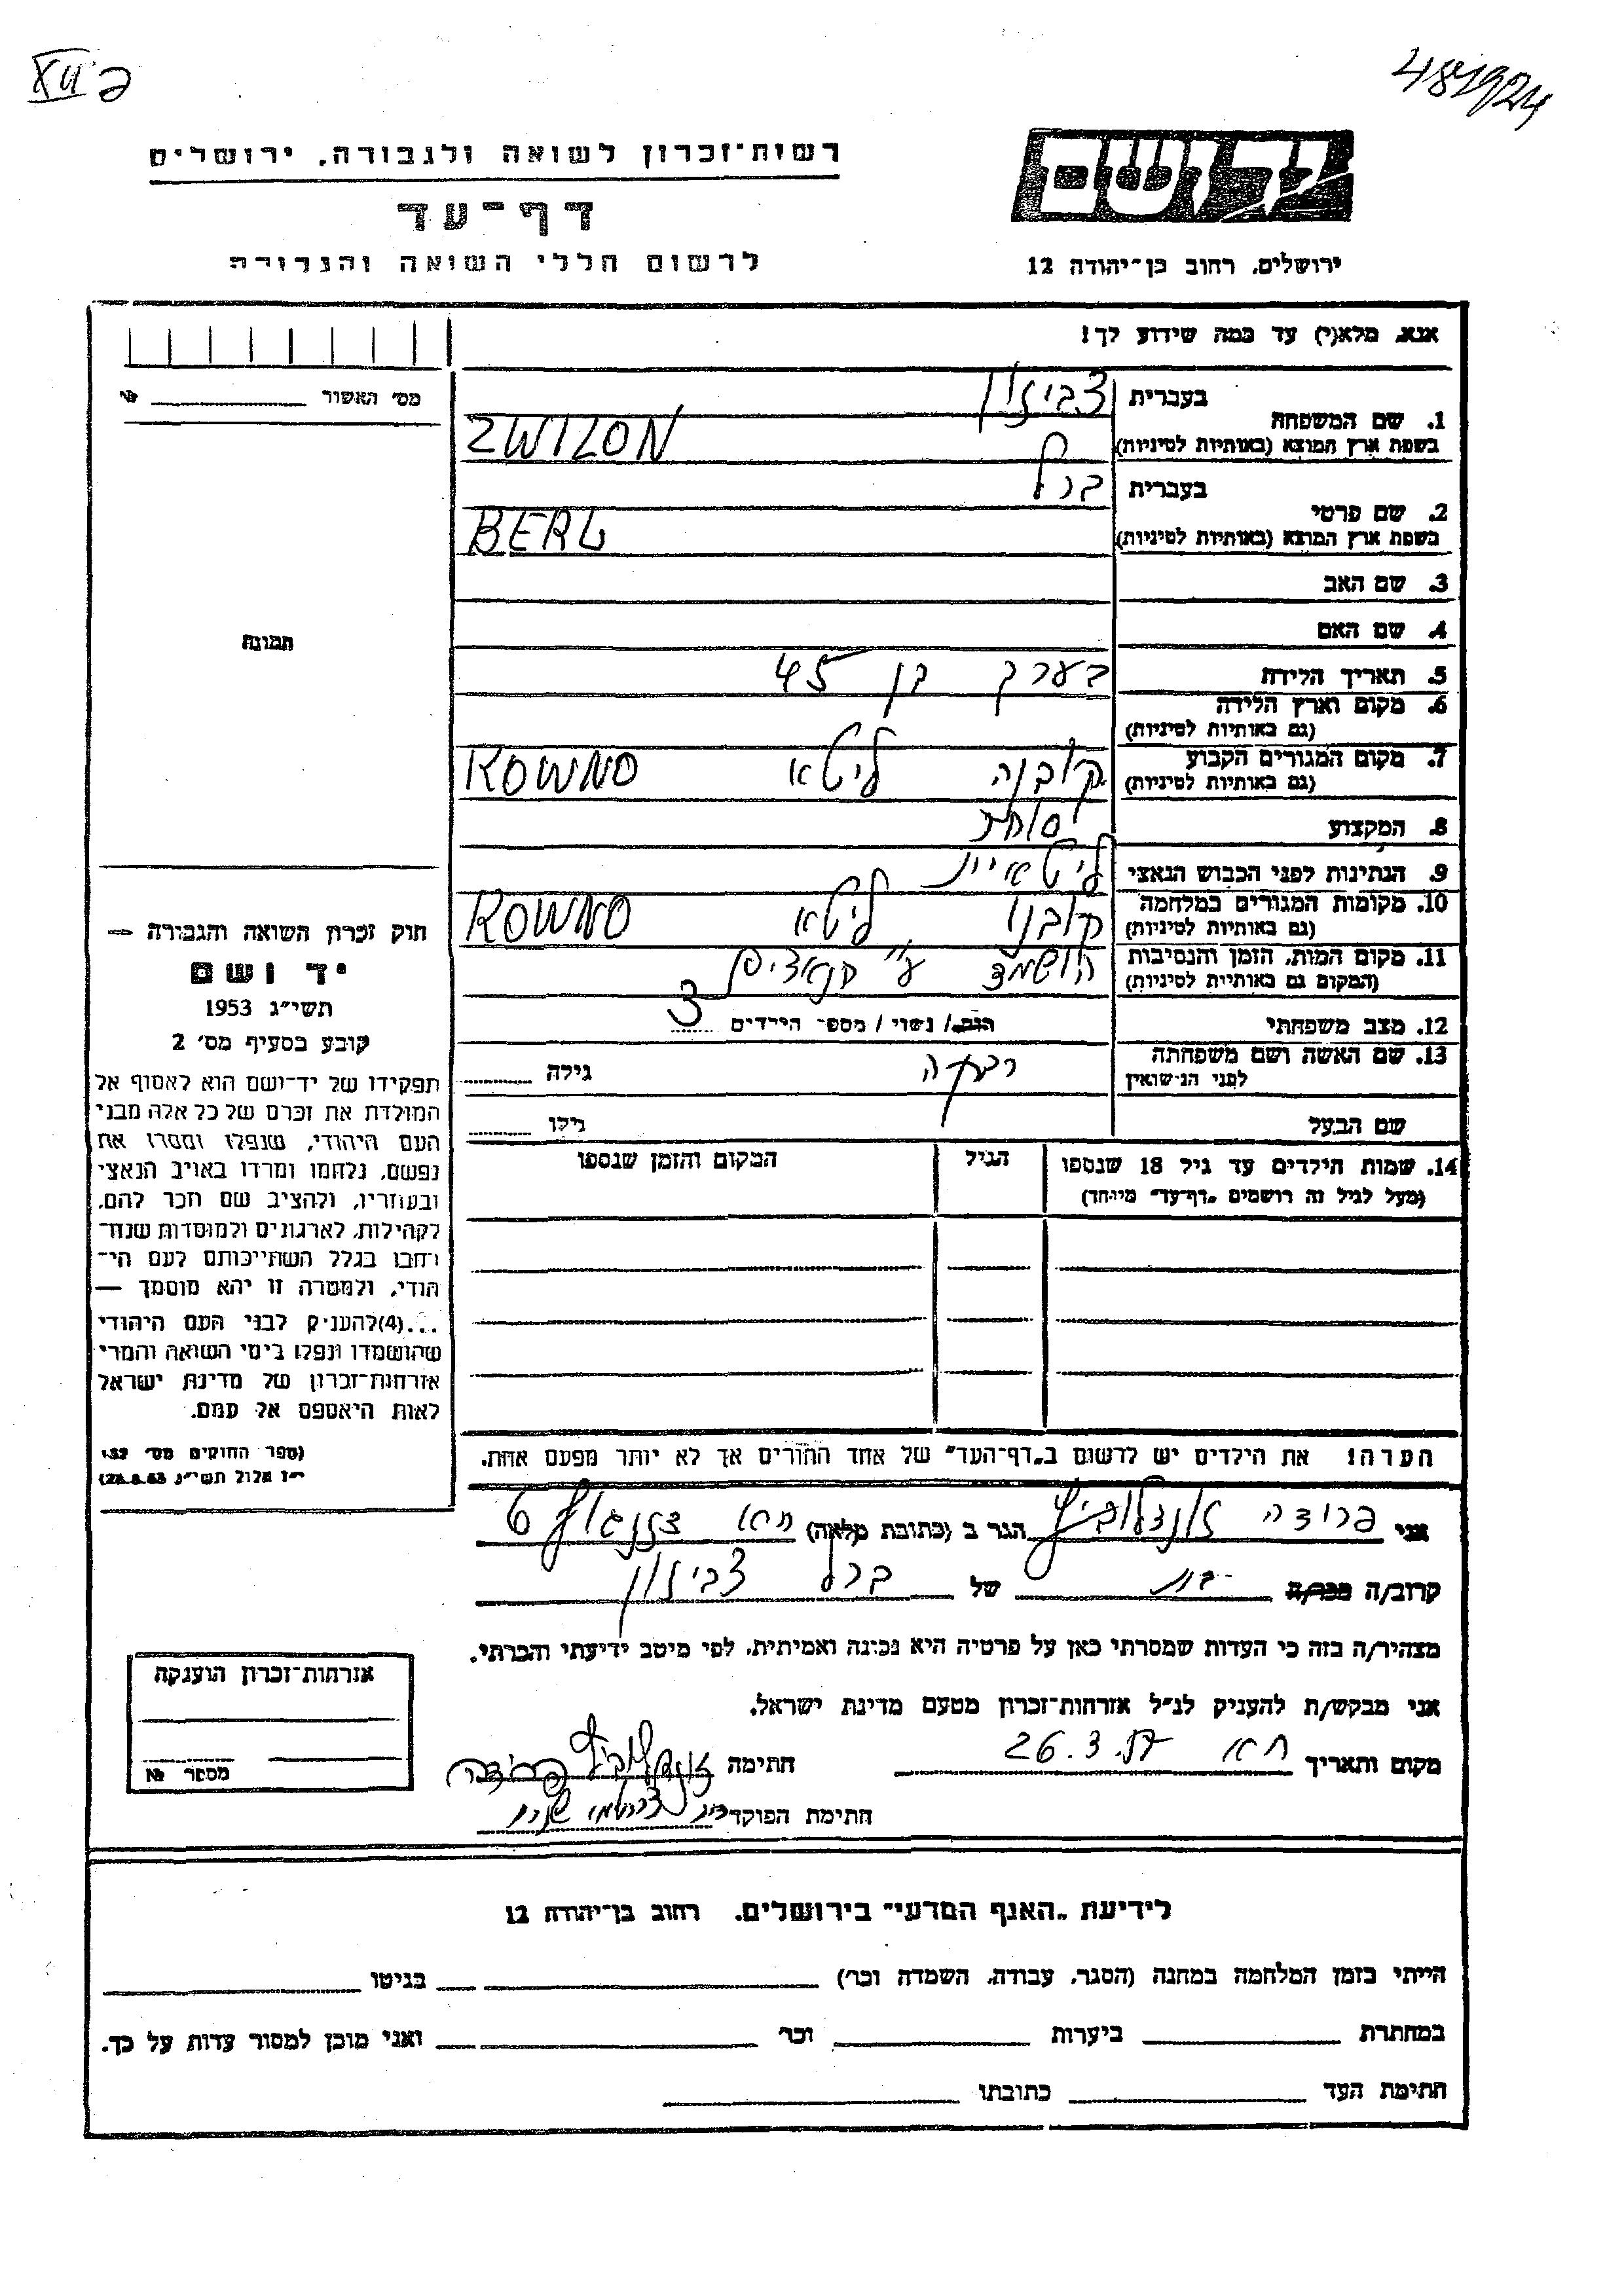 רשות־זכרון לשואה ולגבורה, ירושלים
דף־עד
לרשום חללי השואה והגבורה
יד ושם
ירושלים, רחוב בן־יהודה 12
אנא, מלא(י) עד כמה שידוע לך!
מס׳ האשור № 
1. שם המשפחה
בעברית צביזון
בשפת ארץ המוצא (באותיות לטיניות) ZWIZON
2. שם פרטי
בעברית ברל
בשפת ארץ המוצא (באותיות לטיניות) BERL
3. שם האב
4. שם האם
תמונה
5. תאריך הלידה בערך בן 45
6. מקום וארץ הלידה
(גם באותיות לטיניות)
7. מקום המגורים הקבוע קובנה ליטא KOWNO
(גם באותיות לטיניות)
8. המקצוע סוחר
9. הנתינות לפני הכבוש הנאצי ליטאית
10. מקומות המגורים במלחמה קובנו ליטא KOWNO
(גם באותיות לטיניות)
11. מקום המות, הזמן והנסיבות הושמד ע״י הנאצים
(המקום גם באותיות לטיניות)
12. מצב משפחתי / נשוי / מספר הילדים 3
13. שם האשה ושם משפחתה רבקה גילה
לפני הנישואין
שם הבעל גילו
14. שמות הילדים עד גיל 18 שנספו הגיל המקום והזמן שנספו
(מעל לגיל זה רושמים „דף־עד״ מיוחד)
חוק זכרון השואה והגבורה —
יד ושם
תשי״ג 1953
קובע בסעיף מס׳ 2
תפקידו של יד־ושם הוא לאסוף אל
המולדת את זכרם של כל אלה מבני
העם היהודי, שנפלו ומסרו את
נפשם, נלחמו ומרדו באויב הנאצי
ובעוזריו, ולהציב שם וזכר להם,
לקהילות, לארגונים ולמוסדות שנח־
רבו בגלל השתייכותם לעם הי־
הודי, ולמטרה זו יהא מוסמך —
...(4)להעניק לבני העם היהודי
שהושמדו ונפלו בימי השואה והמרי
אזרחות־זכרון של מדינת ישראל
לאות היאספם אל עמם.
(ספר החוקים מס׳ 132,
י״ז אלול תשי״ג 28.8.53)
הערה! את הילדים יש לרשום ב„דף־העד״ של אחד ההורים אך לא יותר מפעם אחת.
אני פרידה הגר ב (כתובת מלאה) 6
קרוב/ה מכר/ה בת של ברל צביזון
מצהיר/ה בזה כי העדות שמסרתי כאן על פרטיה היא נכונה ואמיתית, לפי מיטב ידיעתי והכרתי.
אני מבקש/ת להעניק לנ״ל אזרחות־זכרון מטעם מדינת ישראל.
מקום ותאריך 26.3 חתימה
חתימת הפוקד
אזרחות־זכרון הוענקה
מספר №
לידיעת „האגף המדעי״ בירושלים, רחוב בן־יהודה 12
הייתי בזמן המלחמה במחנה (הסגר, עבודה, השמדה וכר׳) בגיטו
במחתרת ביערות וכר׳ ואני מוכן למסור עדות על כך.
חתימת העד כתובתו